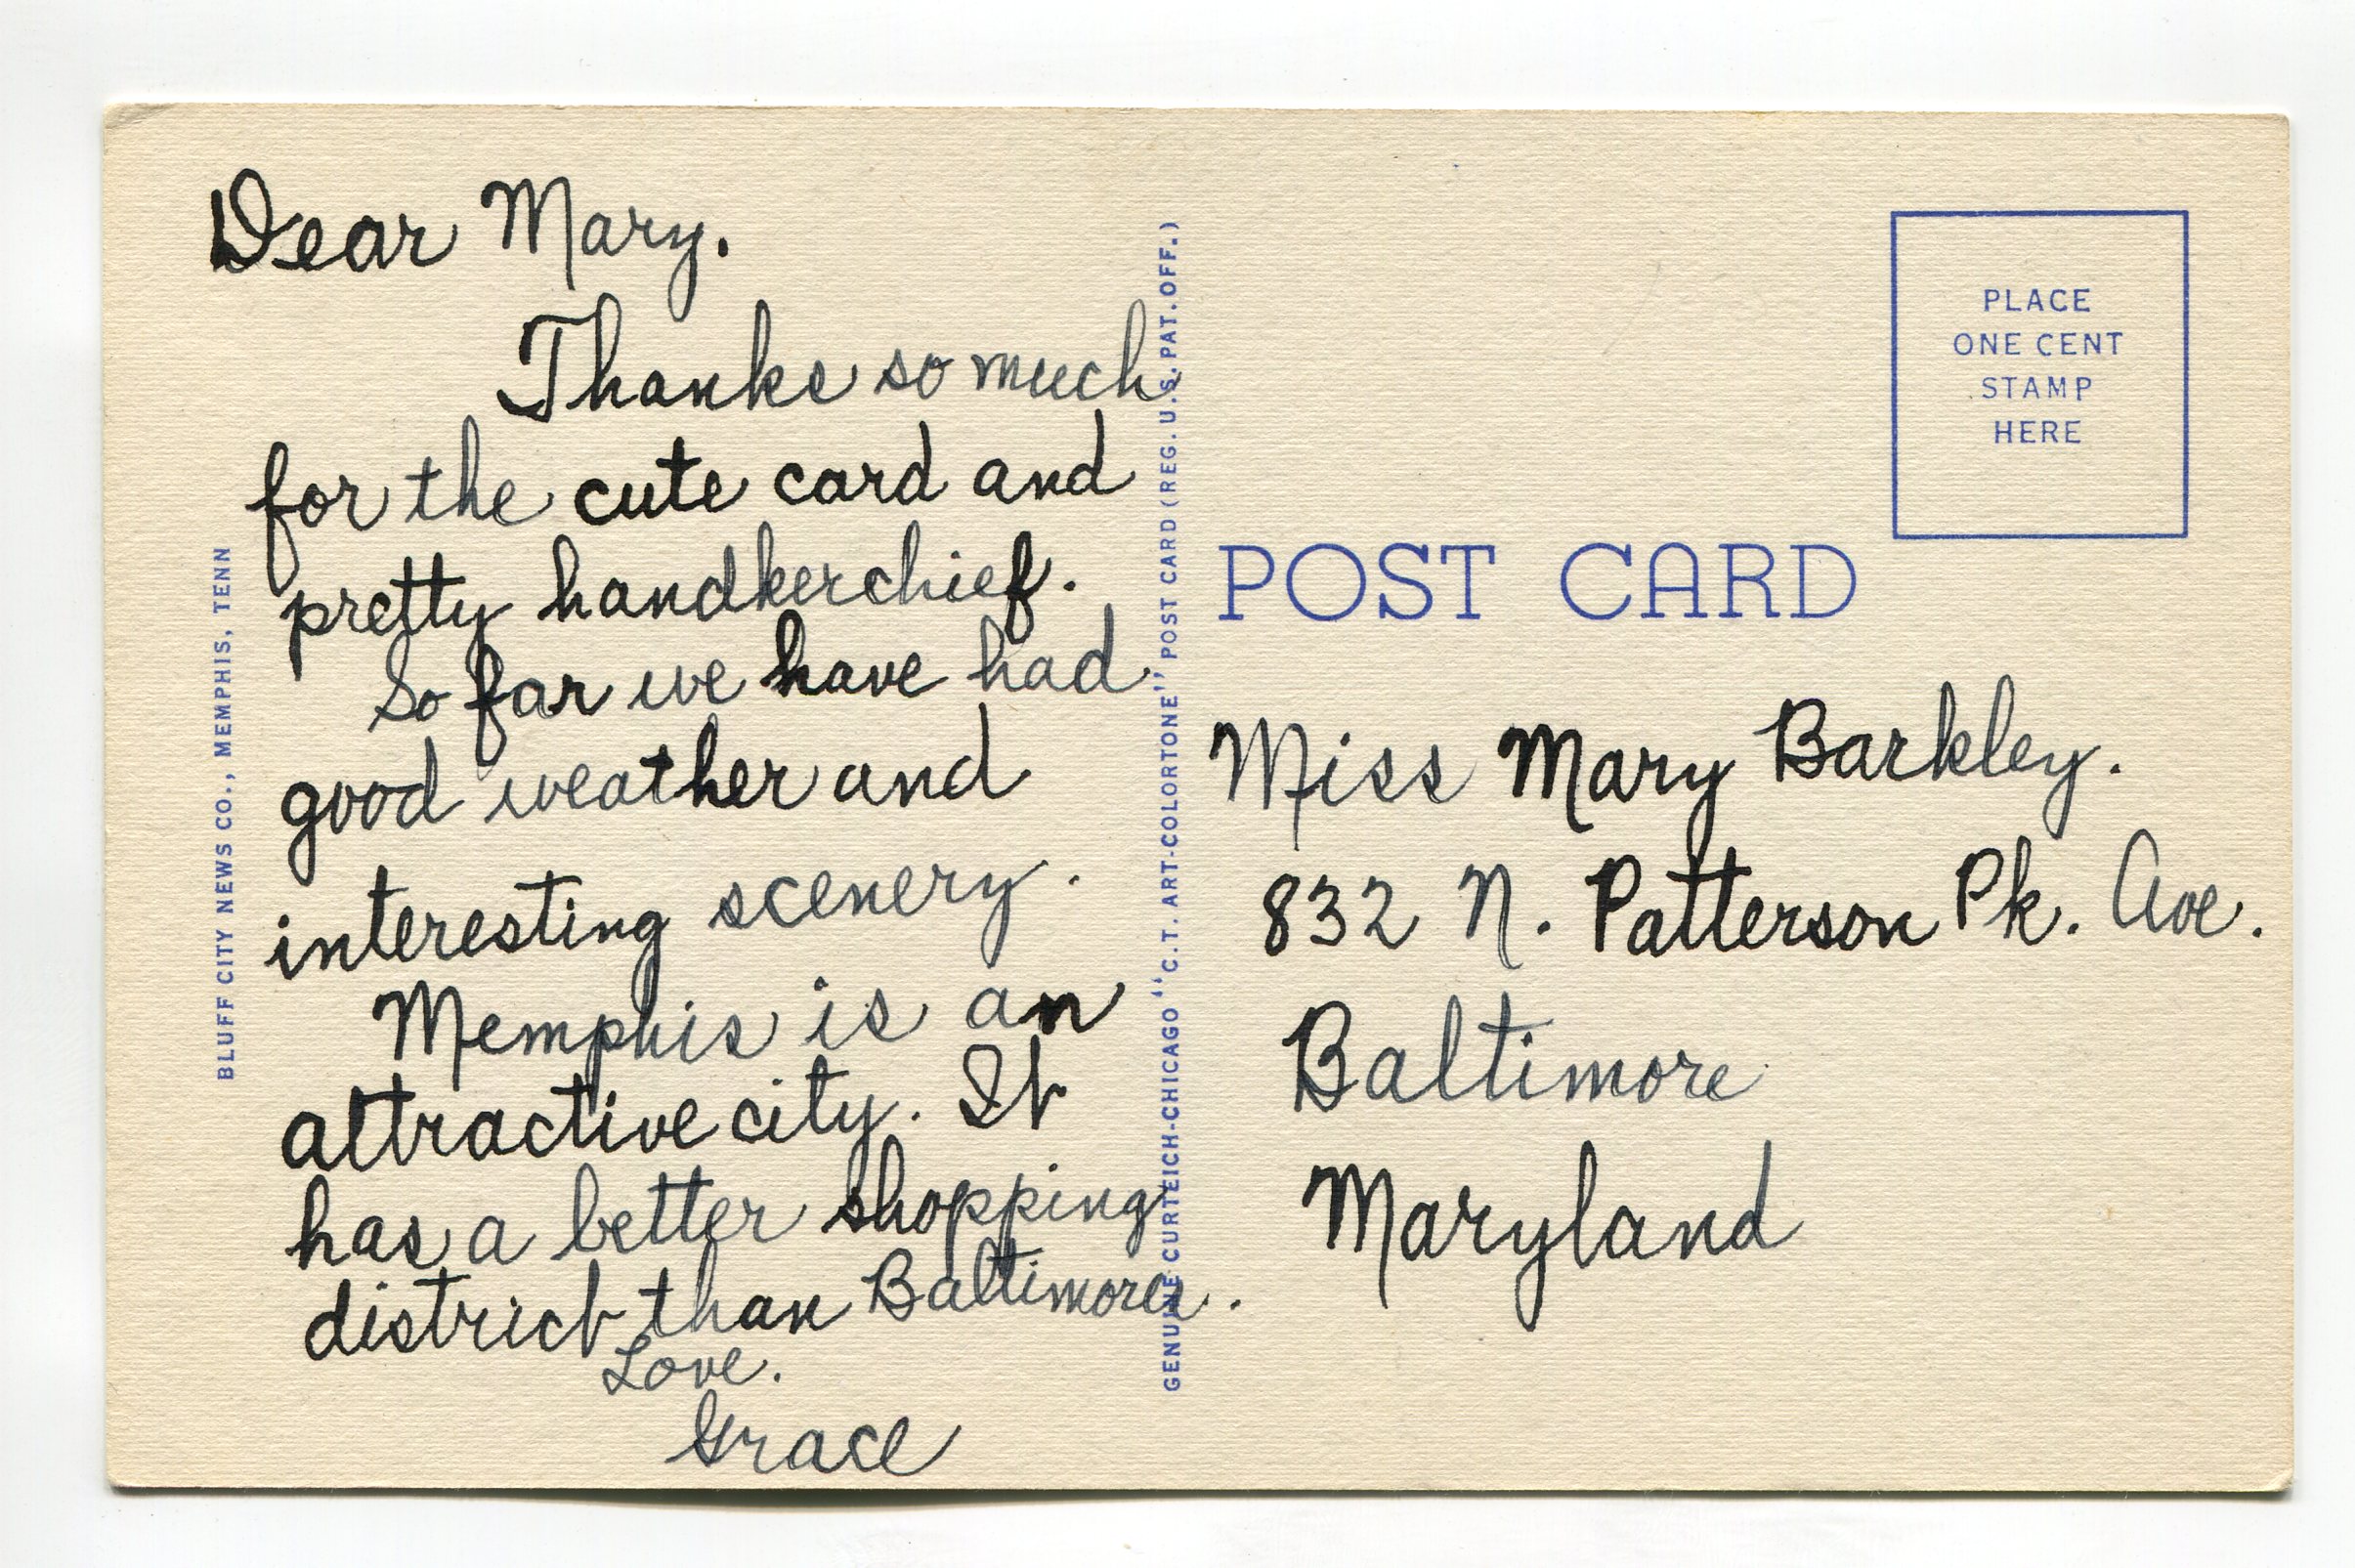 Dear Mary.
Thanks so much
for the cute card and
pretty handkerchief.
So far we have had
good weather and
interesting scenery.
Memphis is an
attractive city. It
has a better shopping
district than Baltimore.
Love.
Grace
BLUFF CITY NEWS CO., MEMPHIS, TENN
GENUINE CURTEICH-CHICAGO "C.T. ART-COLORTONE" POST CARD (REG. U.S. PAT. OFF.)
PLACE
ONE CENT
STAMP
HERE
POST CARD
Miss Mary Barkley.
832 N. Patterson Pk. Ave.
Baltimore
Maryland